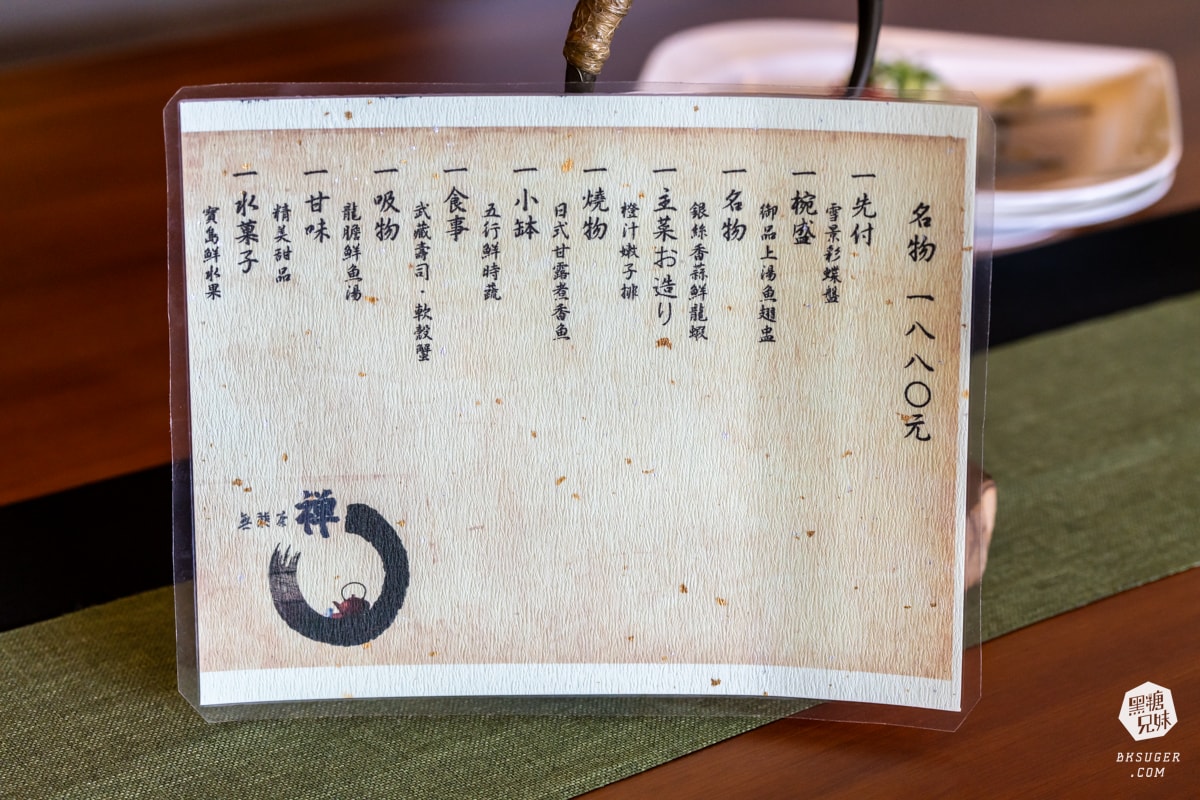 名物 一八八〇元
一先付
雪景彩蝶盤
一椀盛
御品上湯魚翅盅
一名物
銀絲香蒜鮮龍蝦
一主菜お造り
橙汁嫩子排
一燒物
日式甘露煮香魚
一小缽
五行鮮時蔬
一食事
武藏壽司・軟殼蟹
一吸物
龍膽鮮魚湯
一甘味
精美甜品
一水菓子
寶島鮮水果
禅
黑糖兄妹
BKSUGER
.COM